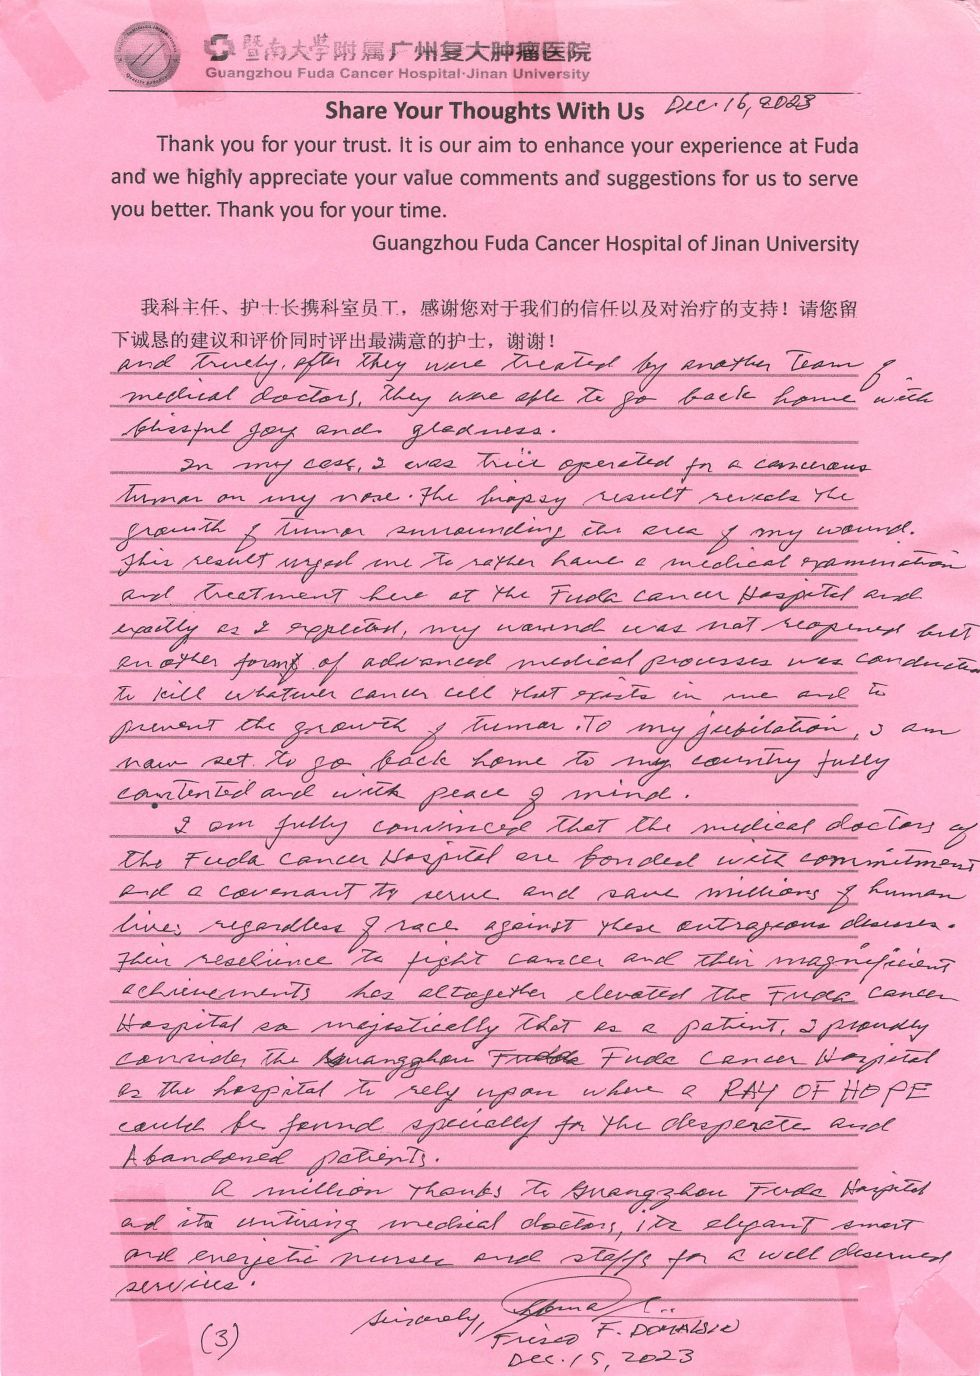 暨南大学附属广州复大肿瘤医院
Guangzhou Fuda Cancer Hospital·Jinan University
Share Your Thoughts With Us Dec. 16, 2023
Thank you for your trust. It is our aim to enhance your experience at Fuda
and we highly appreciate your value comments and suggestions for us to serve
you better. Thank you for your time.
Guangzhou Fuda Cancer Hospital of Jinan University
我科主任、护士长携科室员工，感谢您对于我们的信任以及对治疗的支持！请您留
下诚恳的建议和评价同时评出最满意的护士，谢谢！
and truely, after they were treated by another team of
medical doctors, they were able to go back home with
blissful joy and gladness.
In my case, I was operated for a cancerous
tumor on my nose. The biopsy result reveals the
growth of tumor surrounding the area of my wound.
This result urged me to rather have a medical examination
and treatment here at the Fuda Cancer Hospital and
exactly as I expected, my wound was not reopened but
another form of advanced medical processes was conducted
to kill whatever cancer cell that exists in me and to
prevent the growth of tumor. To my jubilation, I am
now set to go back home to my country fully
contented and with peace of mind.
I am fully convinced that the medical doctors of
the Fuda Cancer Hospital are bonded with commitment
and a covenant to serve and save millions of human
lives regardless of race against these outrageous diseases.
Their resilience to fight cancer and their magnificient
achievements has altogether elevated the Fuda Cancer
Hospital so majestically that as a patient, I proudly
consider the Guangzhou Fuda Cancer Hospital
as the hospital to rely upon where a RAY OF HOPE
could be found specially for the desperate and
Abandoned patients.
A million thanks to Guangzhou Fuda Hospital
and its untiring medical doctors, its elegant smart
and energetic nurses and staffs for a well deserved
services.
Sincerely,
(3)
Frisco F.
Dec. 15, 2023